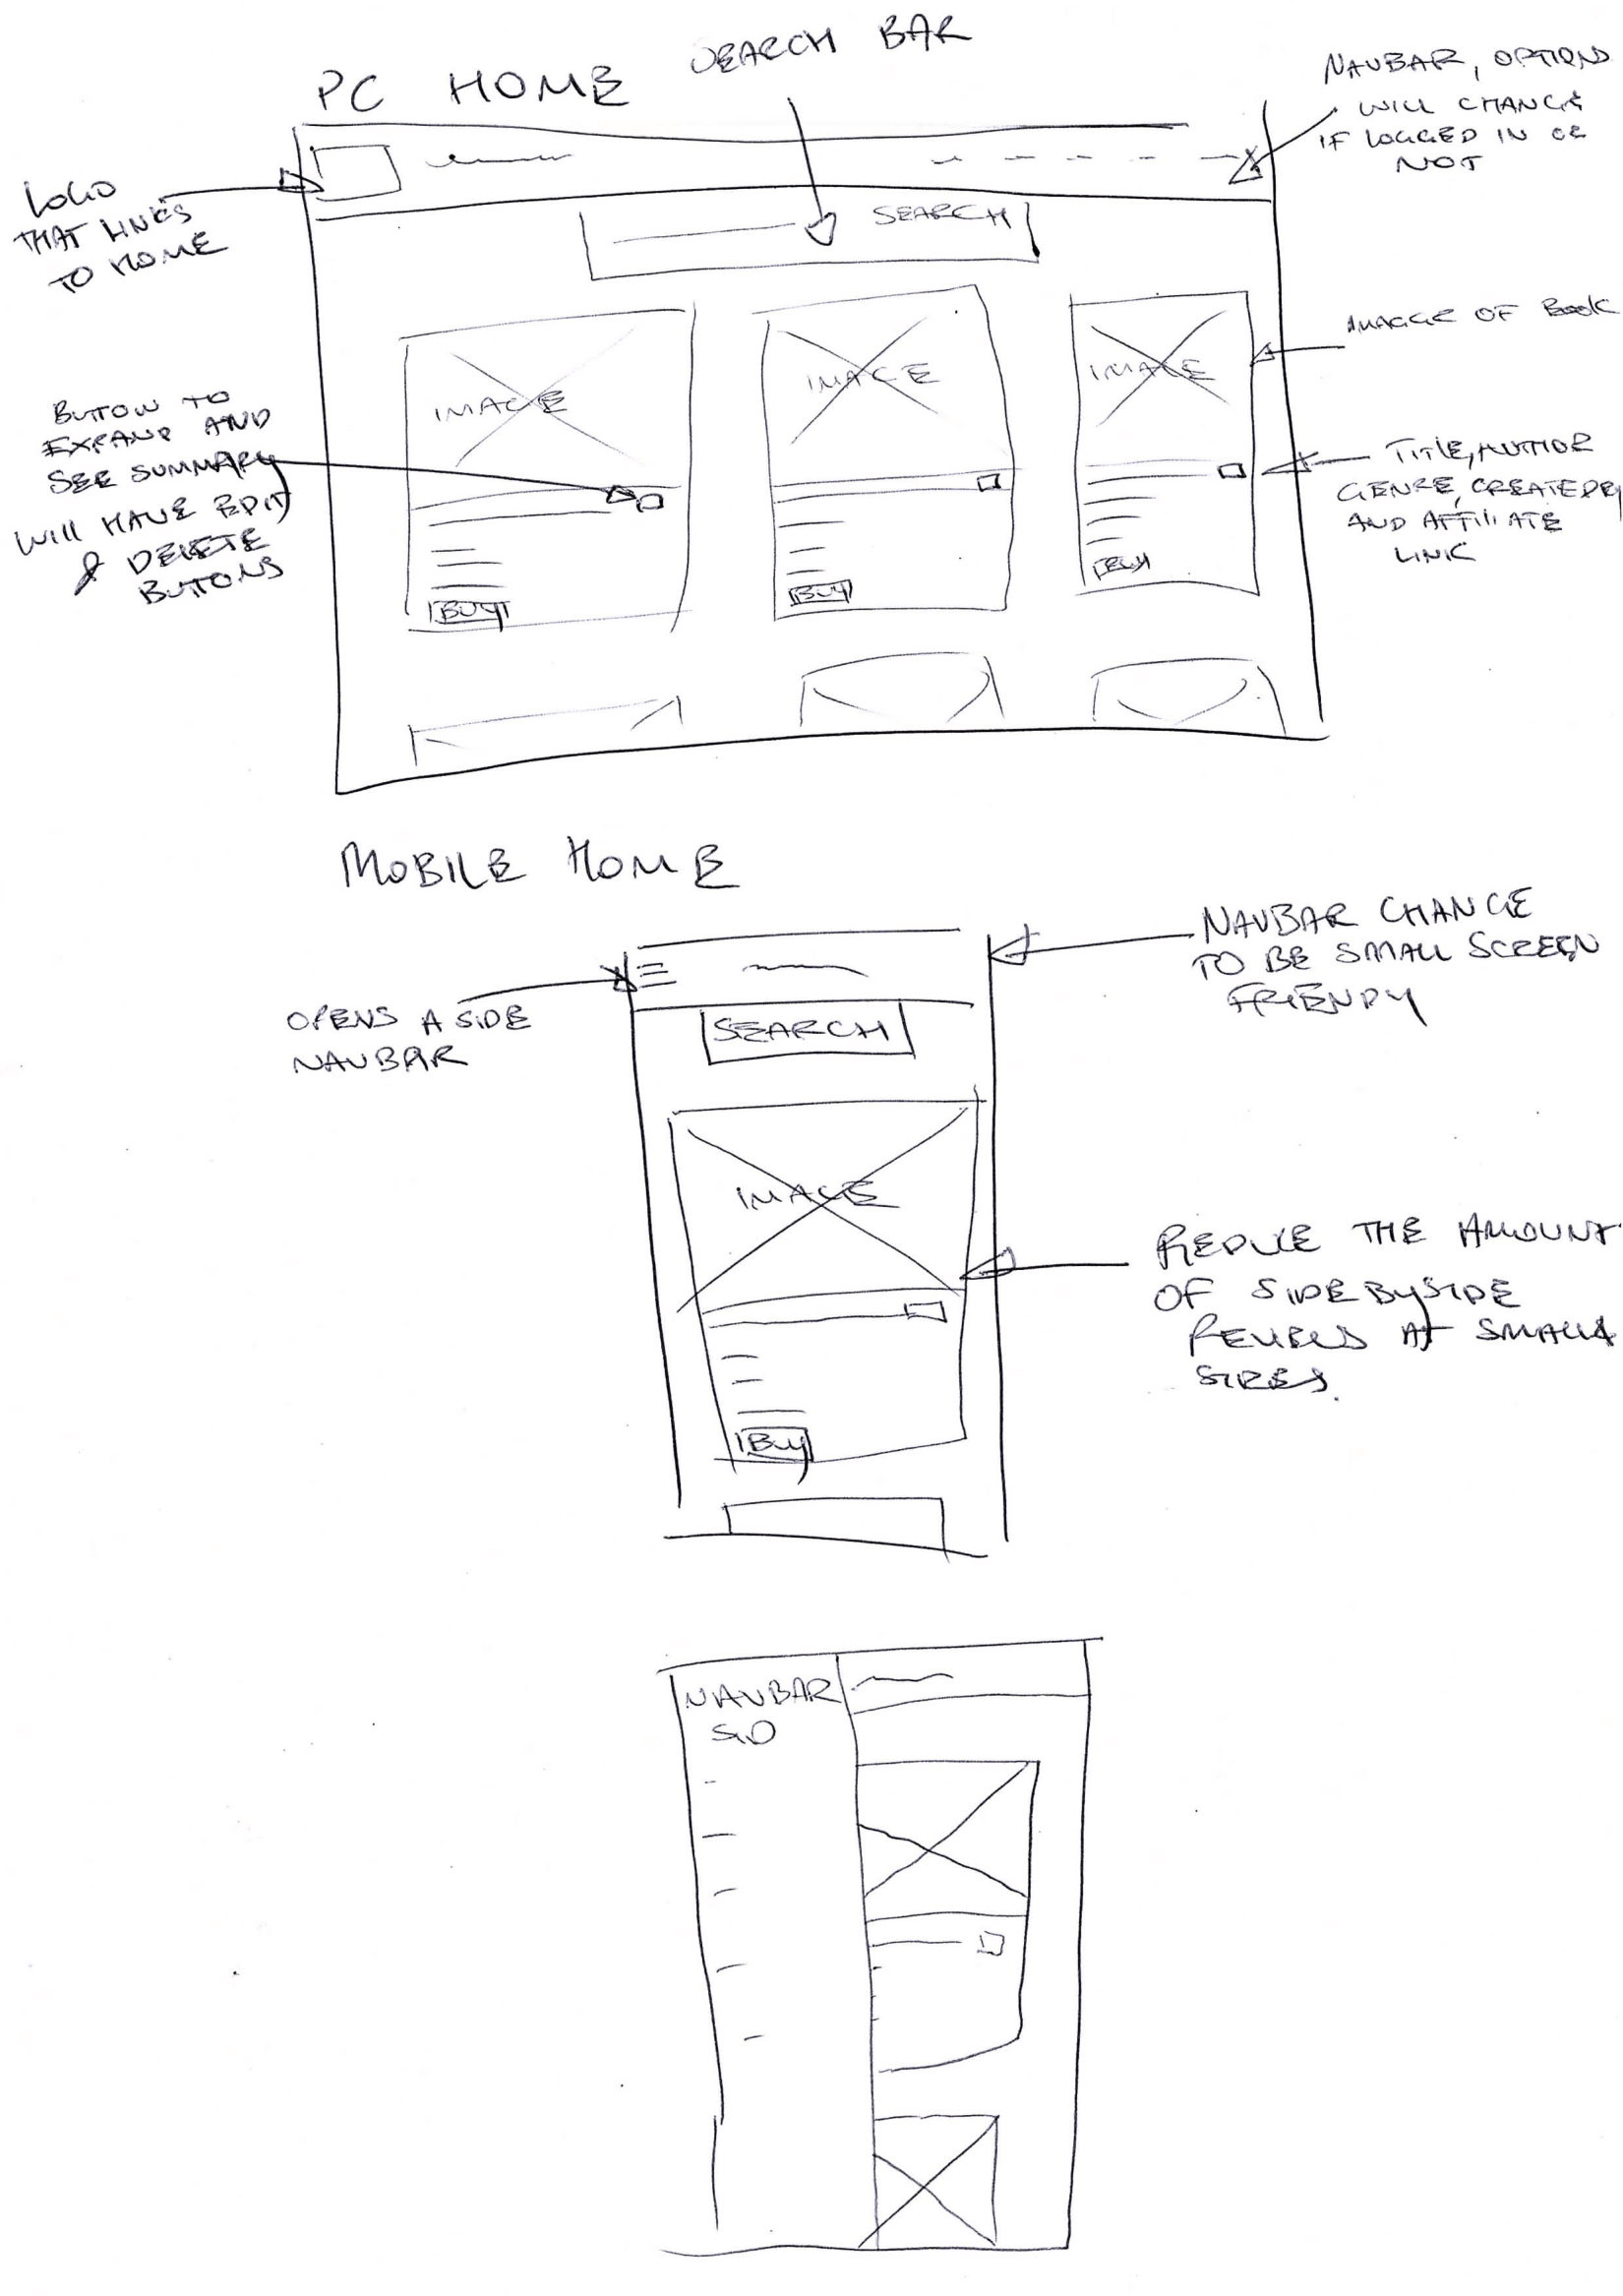 PC HOME
SEARCH BAR
NAVBAR, OPTIONS
WILL CHANGE
IF LOGGED IN OR
NOT
LOGO
THAT LINKS
TO HOME
SEARCH
IMAGE
IMAGE
IMAGE
IMAGGE OF BOOK
BUTTON TO
EXPAND AND
SEE SUMMARY
WILL HAVE EDIT
& DELETE
BUTTONS
TITLE, AUTHOR
GENRE, CREATEDBY
AND AFFILIATE
LINK
BUY
BUY
BUY
MOBILE HOME
NAVBAR CHANGE
TO BE SMALL SCREEN
FRIENDY
OPENS A SIDE
NAVBAR
SEARCH
IMAGE
REDUCE THE AMOUNT
OF SIDE BY SIDE
AT SMALL
SIZES.
BUY
NAVBAR